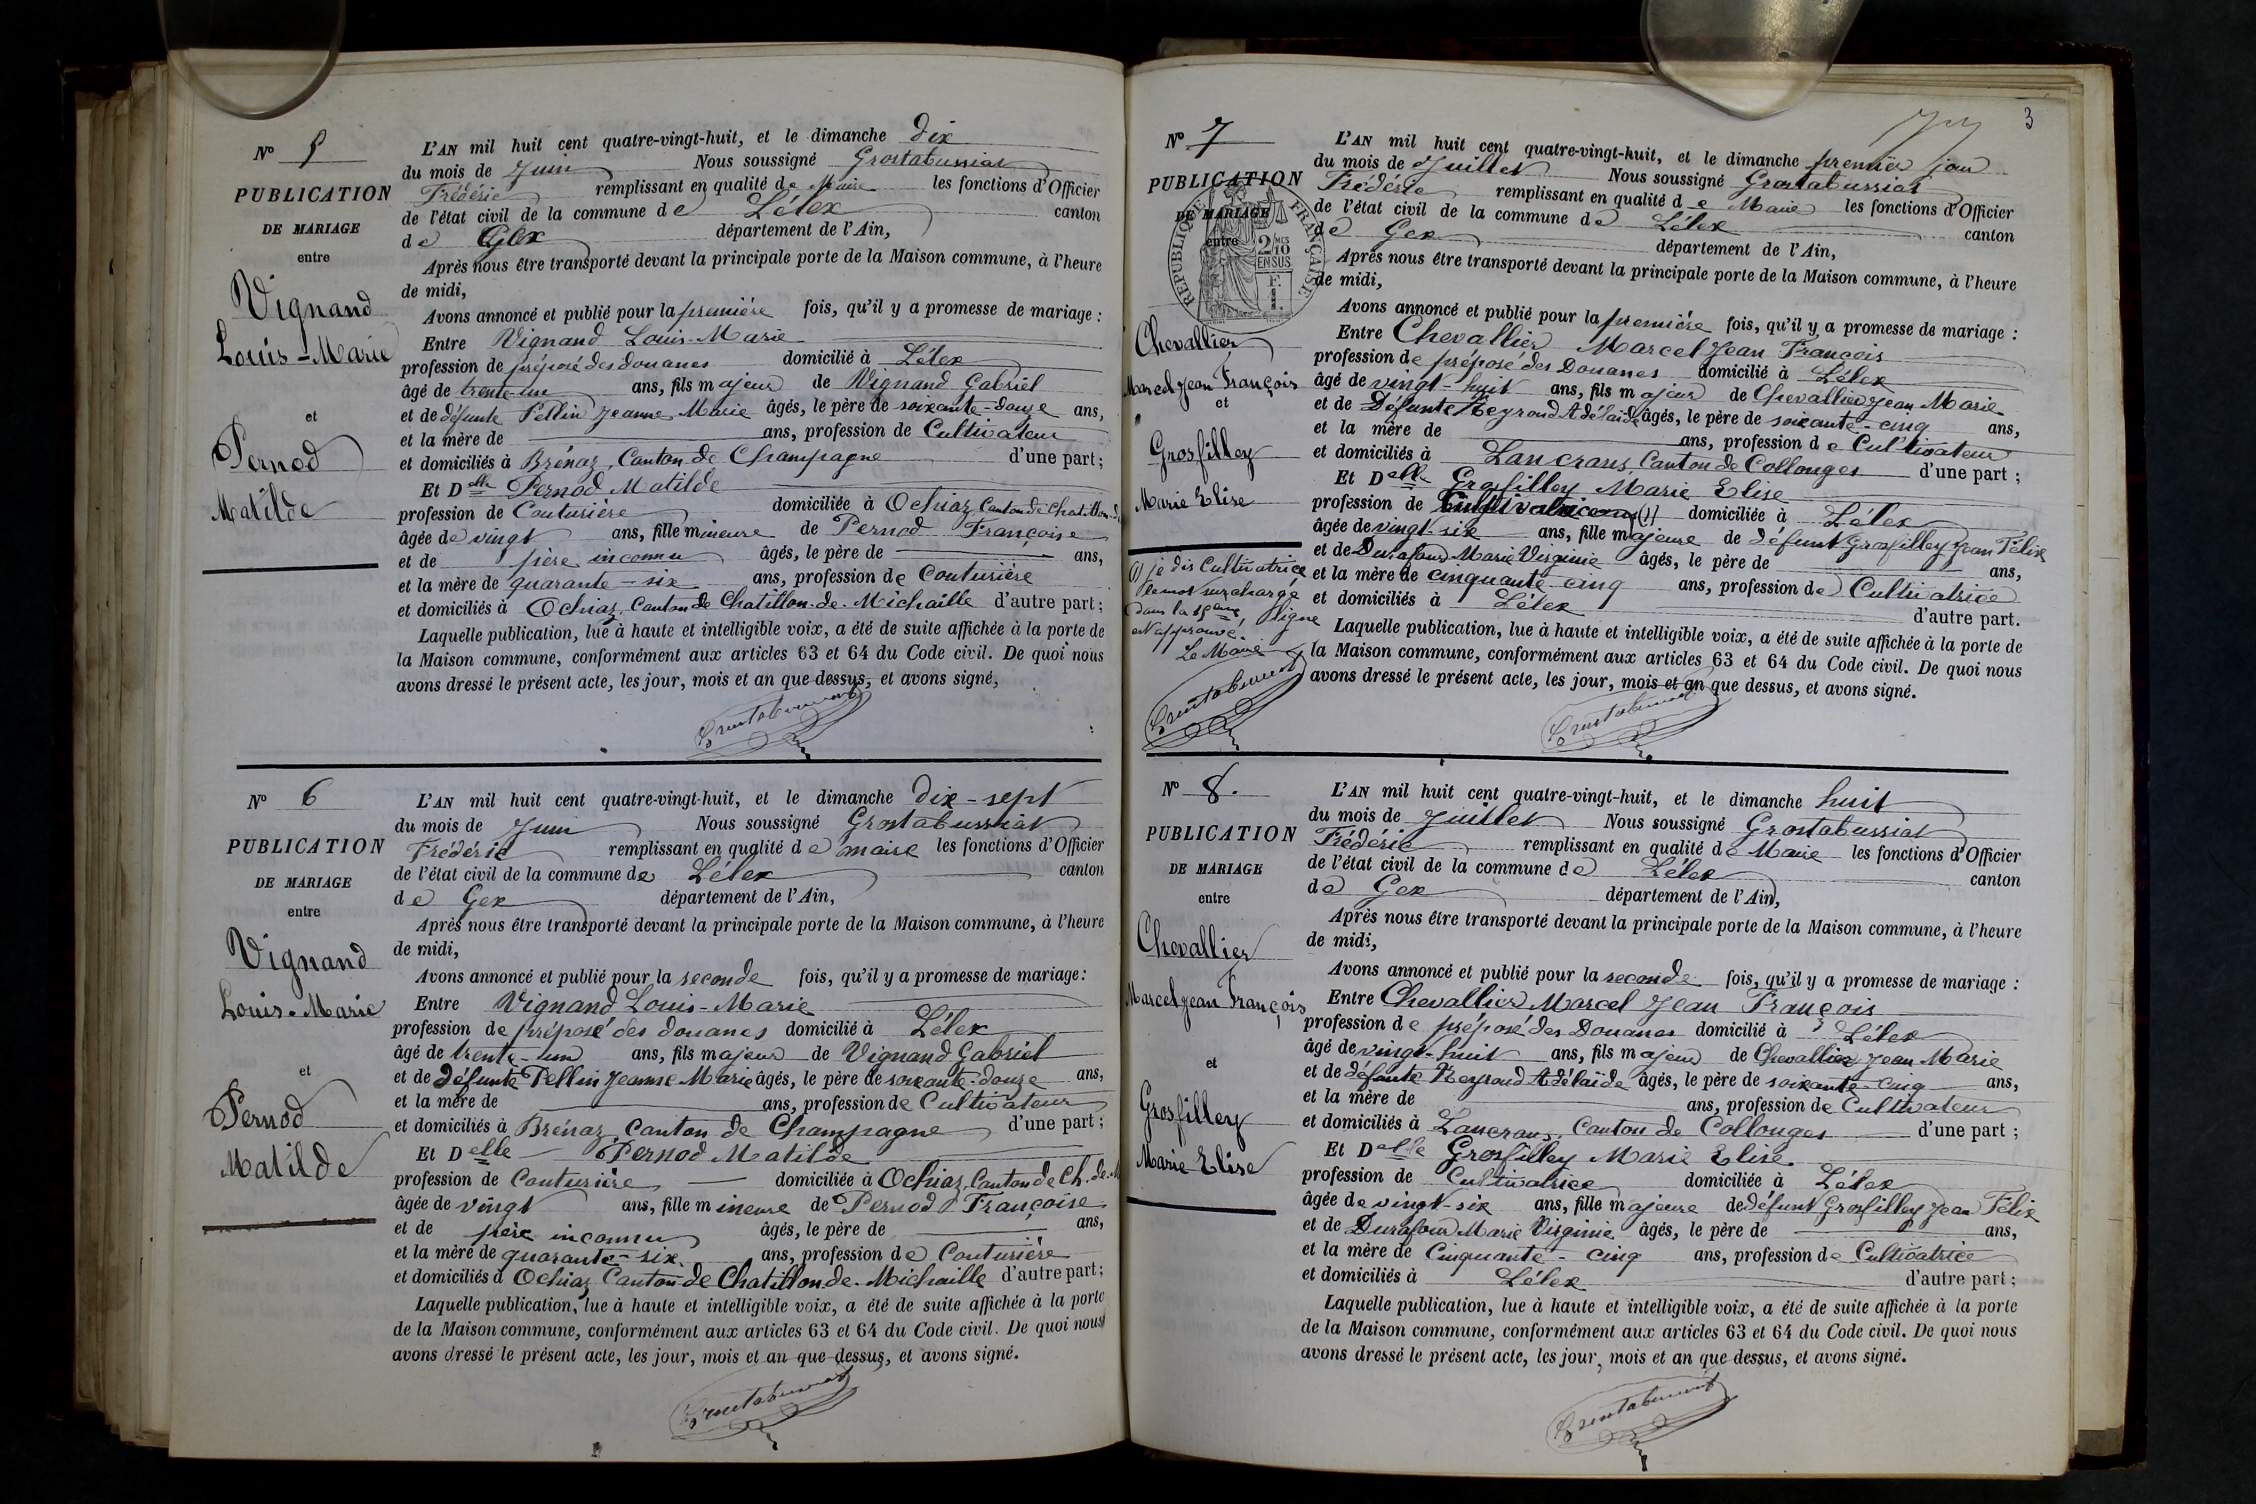 N° 5
PUBLICATION
DE MARIAGE
entre
Vignand
Louis-Marie
et
Pernod
Matilde
L'AN mil huit cent quatre-vingt-huit, et le dimanche dix
du mois de Juin Nous soussigné Grostabussiat
Frédéric remplissant en qualité de Maire les fonctions d'Officier
de l'état civil de la commune de Lélex canton
de Gex département de l'Ain,
Après nous être transporté devant la principale porte de la Maison commune, à l'heure
de midi,
Avons annoncé et publié pour la première fois, qu'il y a promesse de mariage :
Entre Vignand Louis-Marie
profession de préposé des douanes domicilié à Lélex
âgé de trente-un ans, fils majeur de Vignand Gabriel
et de défunte Pellin Jeanne Marie âgés, le père de soixante-douze ans,
et la mère de ans, profession de Cultivateur
et domiciliés à Brénaz, Canton de Champagne d'une part ;
Et Delle Pernod Matilde
profession de Couturière domiciliée à Ochiaz, Canton de Chatillon-d
âgée de vingt ans, fille mineure de Pernod Françoise
et de père inconnu âgés, le père de ans,
et la mère de quarante-six ans, profession de Couturière
et domiciliés à Ochiaz, Canton de Chatillon-de-Michaille d'autre part ;
Laquelle publication, lue à haute et intelligible voix, a été de suite affichée à la porte de
la Maison commune, conformément aux articles 63 et 64 du Code civil. De quoi nous
avons dressé le présent acte, les jour, mois et an que dessus, et avons signé,
Grostabussiat
N° 6
PUBLICATION
DE MARIAGE
entre
Vignand
Louis-Marie
et
Pernod
Matilde
L'AN mil huit cent quatre-vingt-huit, et le dimanche dix-sept
du mois de Juin Nous soussigné Grostabussiat
Frédéric remplissant en qualité de maire les fonctions d'Officier
de l'état civil de la commune de Lélex canton
de Gex département de l'Ain,
Après nous être transporté devant la principale porte de la Maison commune, à l'heure
de midi,
Avons annoncé et publié pour la seconde fois, qu'il y a promesse de mariage :
Entre Vignand Louis-Marie
profession de préposé des douanes domicilié à Lélex
âgé de trente-un ans, fils majeur de Vignand Gabriel
et de défunte Pellin Jeanne Marie âgés, le père de soixante-douze ans,
et la mère de ans, profession de Cultivateur
et domiciliés à Brénaz, Canton de Champagne d'une part ;
Et Delle Pernod Matilde
profession de Couturière domiciliée à Ochiaz, Canton de Ch.-de-M
âgée de vingt ans, fille mineure de Pernod Françoise
et de père inconnu âgés, le père de ans,
et la mère de quarante-six ans, profession de Couturière
et domiciliés à Ochiaz, Canton de Chatillon-de-Michaille d'autre part ;
Laquelle publication, lue à haute et intelligible voix, a été de suite affichée à la porte
de la Maison commune, conformément aux articles 63 et 64 du Code civil. De quoi nous
avons dressé le présent acte, les jour, mois et an que dessus, et avons signé.
Grostabussiat
3
N° 7
PUBLICATION
DE MARIAGE
entre
RÉPUBLIQUE FRANÇAISE
2/10 MES
EN SUS
F.
1.
Chevallier
Marcel Jean François
et
Grosfilley
Marie Elise
(1) je dis Cultivatrice
le mot surchargé
dans la 19ème ligne
est approuvé.
Le Maire
Grostabussiat
L'AN mil huit cent quatre-vingt-huit, et le dimanche premier jour
du mois de Juillet Nous soussigné Grostabussiat
Frédéric remplissant en qualité de Maire les fonctions d'Officier
de l'état civil de la commune de Lélex canton
de Gex département de l'Ain,
Après nous être transporté devant la principale porte de la Maison commune, à l'heure
de midi,
Avons annoncé et publié pour la première fois, qu'il y a promesse de mariage :
Entre Chevallier Marcel Jean François
profession de préposé des Douanes domicilié à Lélex
âgé de vingt-huit ans, fils majeur de Chevallier Jean Marie
et de Défunte Reyroud Adélaïde âgés, le père de soixante-cinq ans,
et la mère de ans, profession de Cultivateur
et domiciliés à Lancrans, Canton de Collonges d'une part ;
Et Delle Grosfilley Marie Elise
profession de (1) domiciliée à Lélex
âgée de vingt-six ans, fille majeure de défunt Grosfilley Jean Félix
et de Durafour Marie Virginie âgés, le père de ans,
et la mère de cinquante-cinq ans, profession de Cultivatrice
et domiciliés à Lélex d'autre part.
Laquelle publication, lue à haute et intelligible voix, a été de suite affichée à la porte de
la Maison commune, conformément aux articles 63 et 64 du Code civil. De quoi nous
avons dressé le présent acte, les jour, mois et an que dessus, et avons signé.
Grostabussiat
N° 8.
PUBLICATION
DE MARIAGE
entre
Chevallier
Marcel Jean François
et
Grosfilley
Marie Elise
L'AN mil huit cent quatre-vingt-huit, et le dimanche huit
du mois de Juillet Nous soussigné Grostabussiat
Frédéric remplissant en qualité de Maire les fonctions d'Officier
de l'état civil de la commune de Lélex canton
de Gex département de l'Ain,
Après nous être transporté devant la principale porte de la Maison commune, à l'heure
de midi,
Avons annoncé et publié pour la seconde fois, qu'il y a promesse de mariage :
Entre Chevallier Marcel Jean François
profession de préposé des Douanes domicilié à Lélex
âgé de vingt-huit ans, fils majeur de Chevallier Jean Marie
et de défunte Reyroud Adélaïde âgés, le père de soixante-cinq ans,
et la mère de ans, profession de Cultivateur
et domiciliés à Lancrans, Canton de Collonges d'une part ;
Et Delle Grosfilley Marie Elise
profession de Cultivatrice domiciliée à Lélex
âgée de vingt-six ans, fille majeure de défunt Grosfilley Jean Félix
et de Durafour Marie Virginie âgés, le père de ans,
et la mère de Cinquante-cinq ans, profession de Cultivatrice
et domiciliés à Lélex d'autre part ;
Laquelle publication, lue à haute et intelligible voix, a été de suite affichée à la porte
de la Maison commune, conformément aux articles 63 et 64 du Code civil. De quoi nous
avons dressé le présent acte, les jour, mois et an que dessus, et avons signé.
Grostabussiat